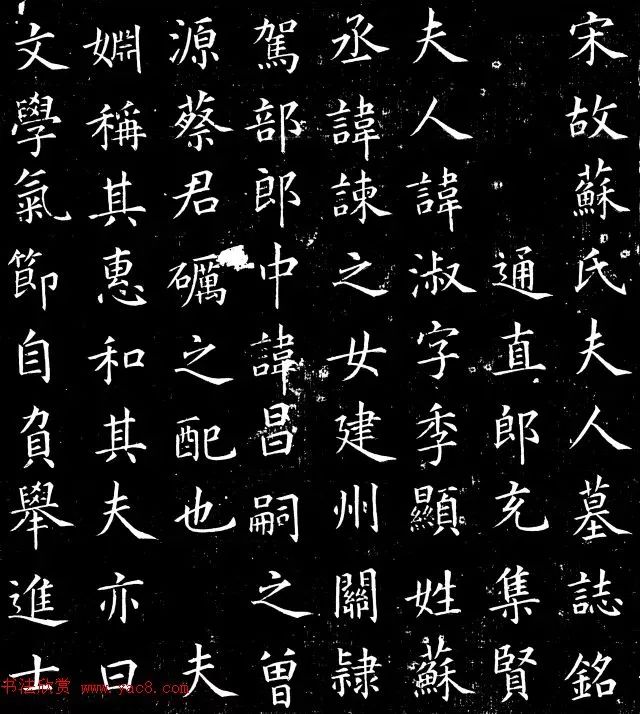 宋故蘇氏夫人墓誌銘
通直郎充集賢
夫人諱淑字季顯姓蘇
丞諱諫之女建州關隷
駕部郎中諱昌嗣之曽
源蔡君礪之配也 夫
婣稱其惠和其夫亦曰
文學氣節自負舉進士
书法欣赏 www.yac8.com